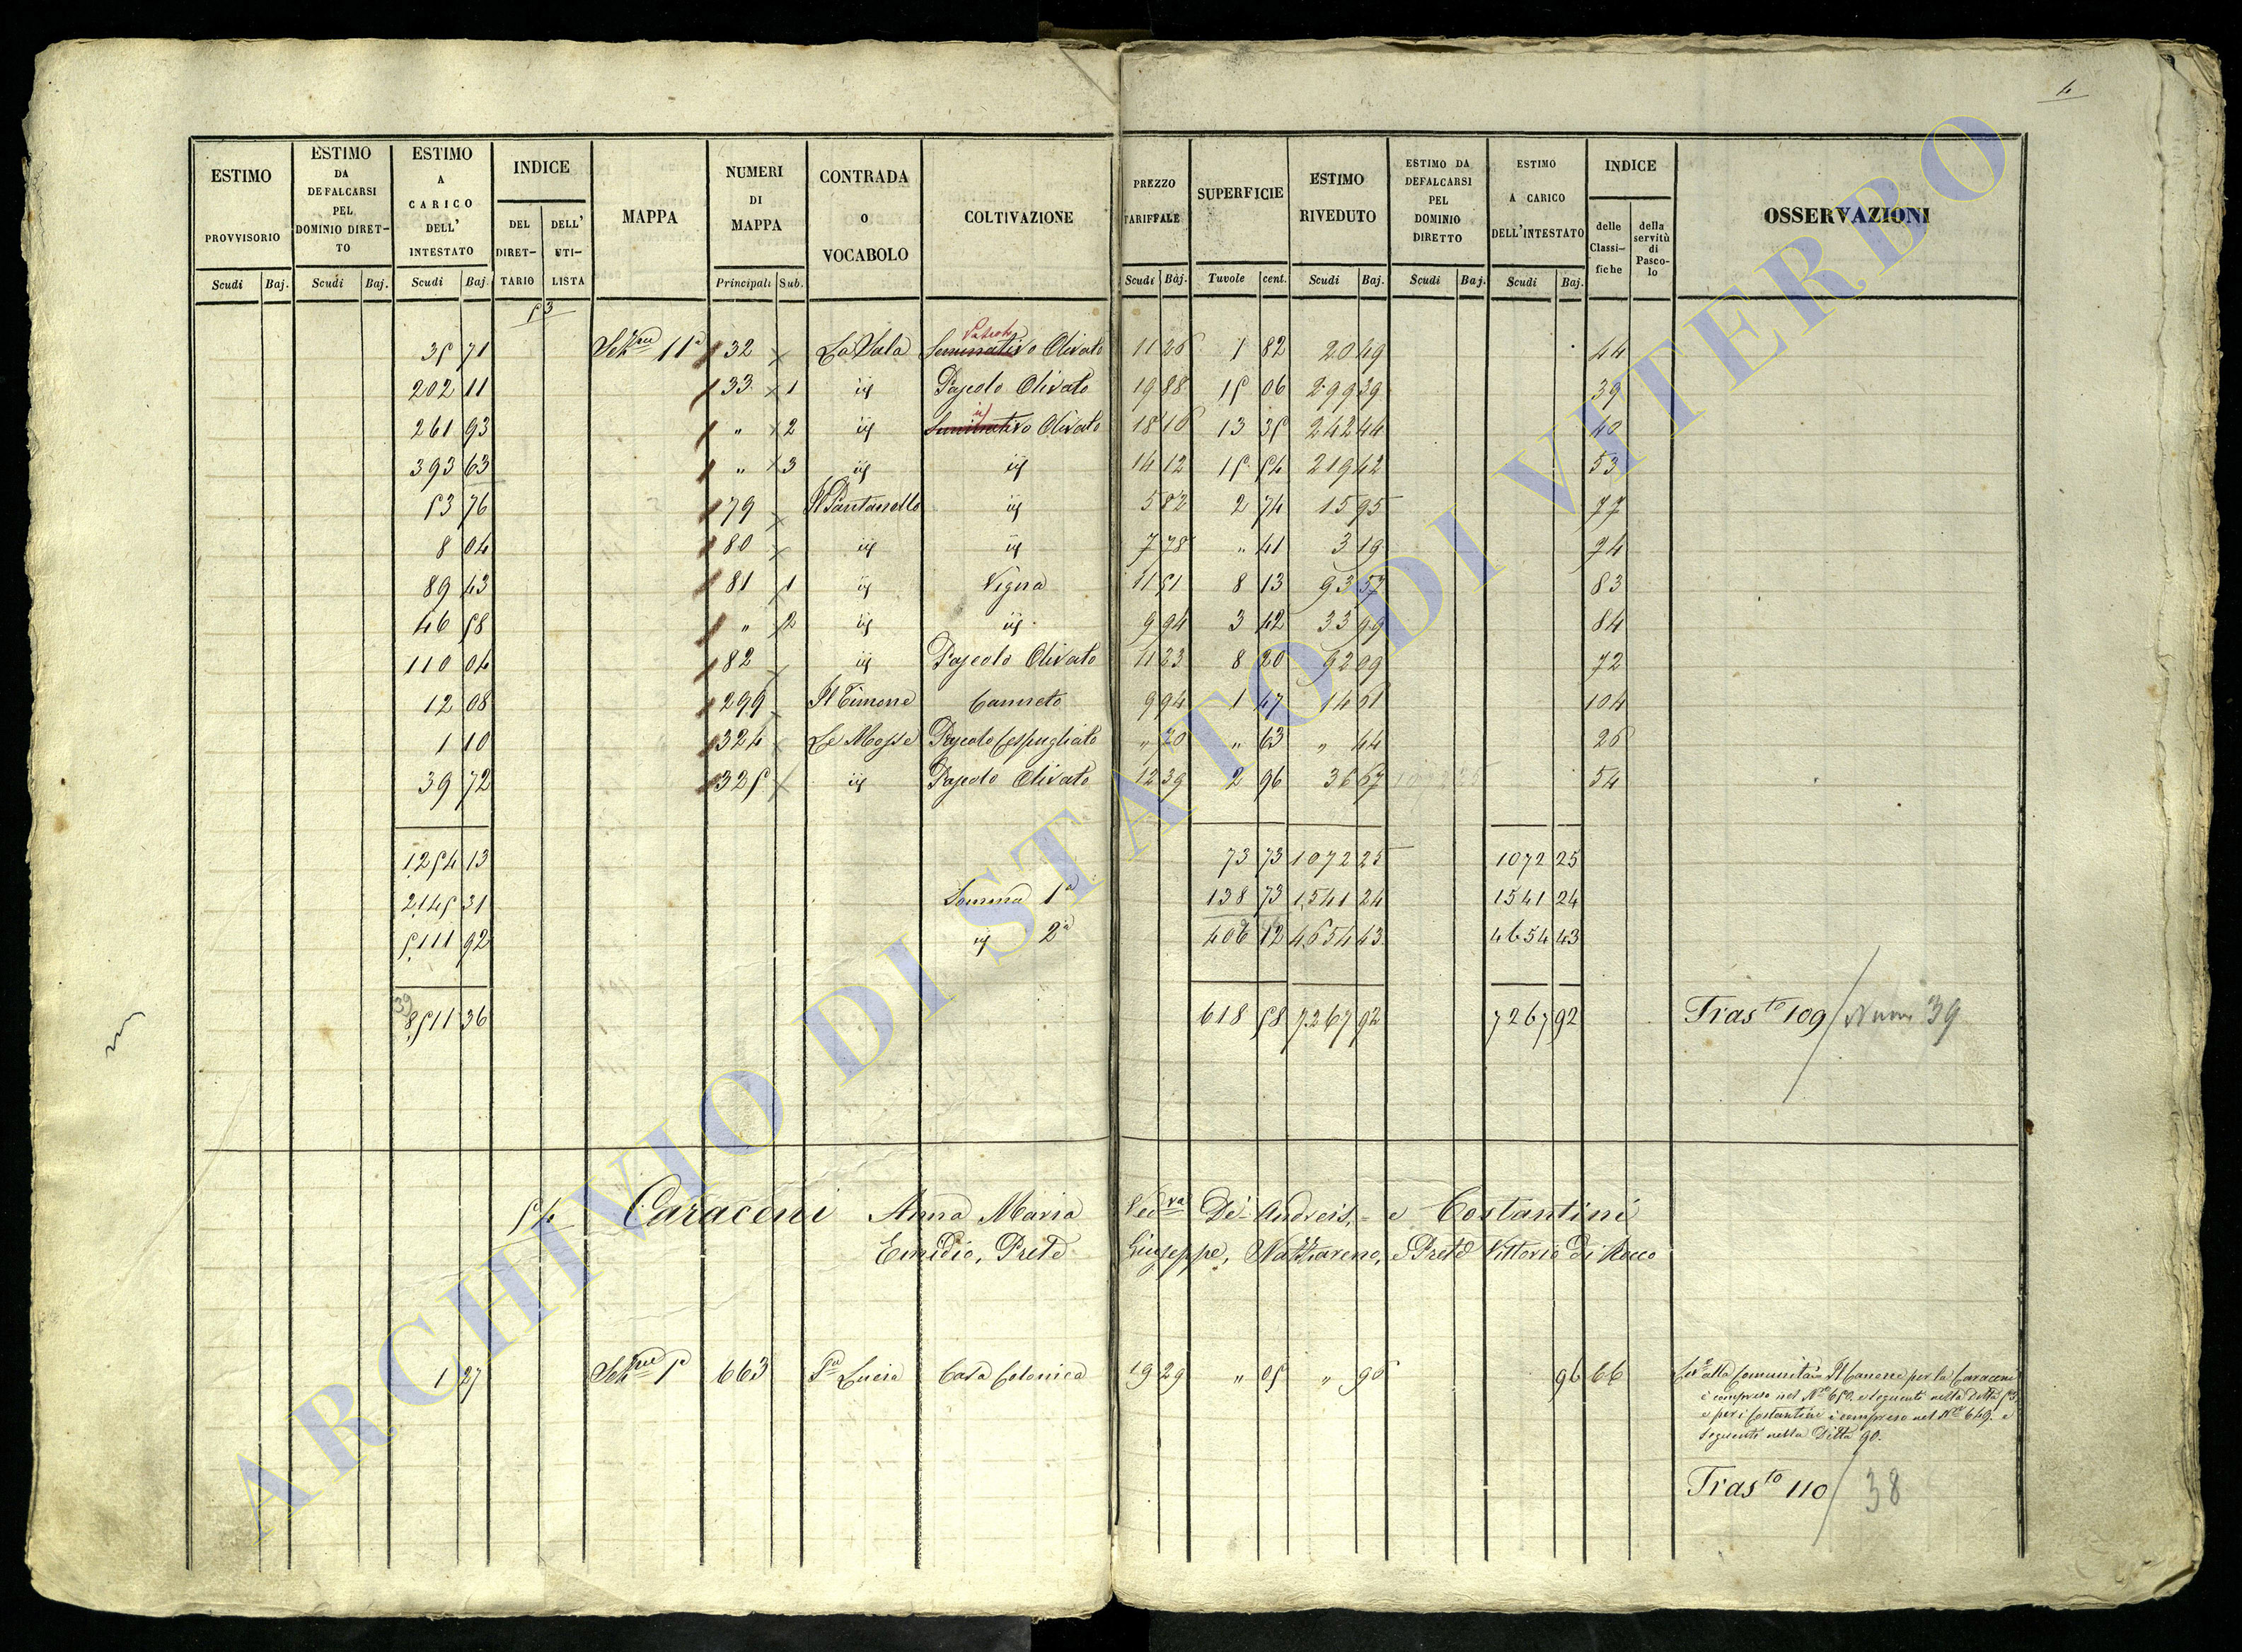 4
ESTIMO PROVVISORIO Scudi Baj.
ESTIMO DA DEFALCARSI PEL DOMINIO DIRETTO Scudi Baj.
ESTIMO A CARICO DELL' INTESTATO Scudi Baj.
INDICE DEL DIRETTARIO DELL' UTILISTA
MAPPA
NUMERI DI MAPPA Principali Sub.
CONTRADA O VOCABOLO
COLTIVAZIONE
PREZZO TARIFFALE Scudi Baj.
SUPERFICIE Tavole cent.
ESTIMO RIVEDUTO Scudi Baj.
ESTIMO DA DEFALCARSI PEL DOMINIO DIRETTO Scudi Baj.
ESTIMO A CARICO DELL'INTESTATO Scudi Baj.
INDICE delle Classifiche della servitù di Pascolo
OSSERVAZIONI
53
Pascolo
35 71 Sez.ne 11a 132 La Sala Seminativo Olivato 11 26 1 82 20 49 44
202 11 133 1 id Pascolo Olivato 19 88 15 06 299 39 39
id
261 93 " 2 id Seminativo Olivato 18 16 13 35 242 44 40
393 63 " 3 id id 14 12 15 54 219 42 53
53 76 179 Il Pantanello id 5 82 2 74 15 95 77
8 04 180 id id 7 78 " 41 3 19 74
89 43 181 1 id Vigna 11 51 8 13 93 57 83
46 58 " 2 id id 9 94 3 42 33 99 84
110 04 182 id Pascolo Olivato 11 23 8 20 92 09 72
12 08 299 Il Timone Canneto 9 94 1 47 14 61 104
1 10 324 Le Mosse Pascolo Cespugliato " 70 " 63 " 44 26
39 72 325 id Pascolo Olivato 12 39 2 96 36 67 54
1254 13 73 73 1072 25 1072 25
2145 31 Somma 1a 138 73 1541 24 1541 24
5111 92 id 2a 406 12 4654 43 4654 43
39
8511 36 618 58 7267 92 7267 92 Tras.to 109 / 39
54 Caraceni Anna Maria Ved.va De Andreis, e Costantini
Emidio, Prete Giuseppe, Nazzareno, e Prete Vittorio di Rocco
1 27 Sez.ne 1a 663 S.a Lucia Casa Colonica 19 29 " 05 " 96 96 66 alla Comunità Il Canone per la Caraceni
è compreso nel N.ro 650. e seguenti nella Ditta 53.
e per i Costantini è compreso nel N.ro 649. e
seguenti nella Ditta 90.
Tras.to 110 / 38
ARCHIVIO DI STATO DI VITERBO